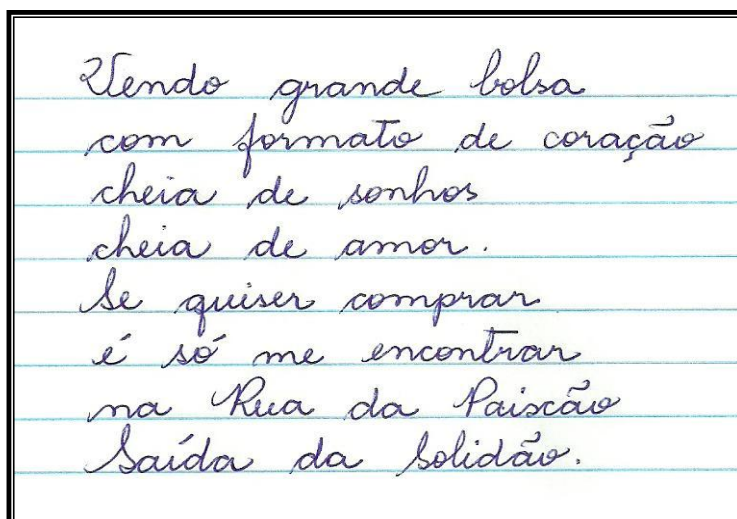 Vendo grande bolsa
com formato de coração
cheia de sonhos
cheia de amor.
Se quiser comprar
é só me encontrar
na Rua da Paixão
Saída da Solidão.